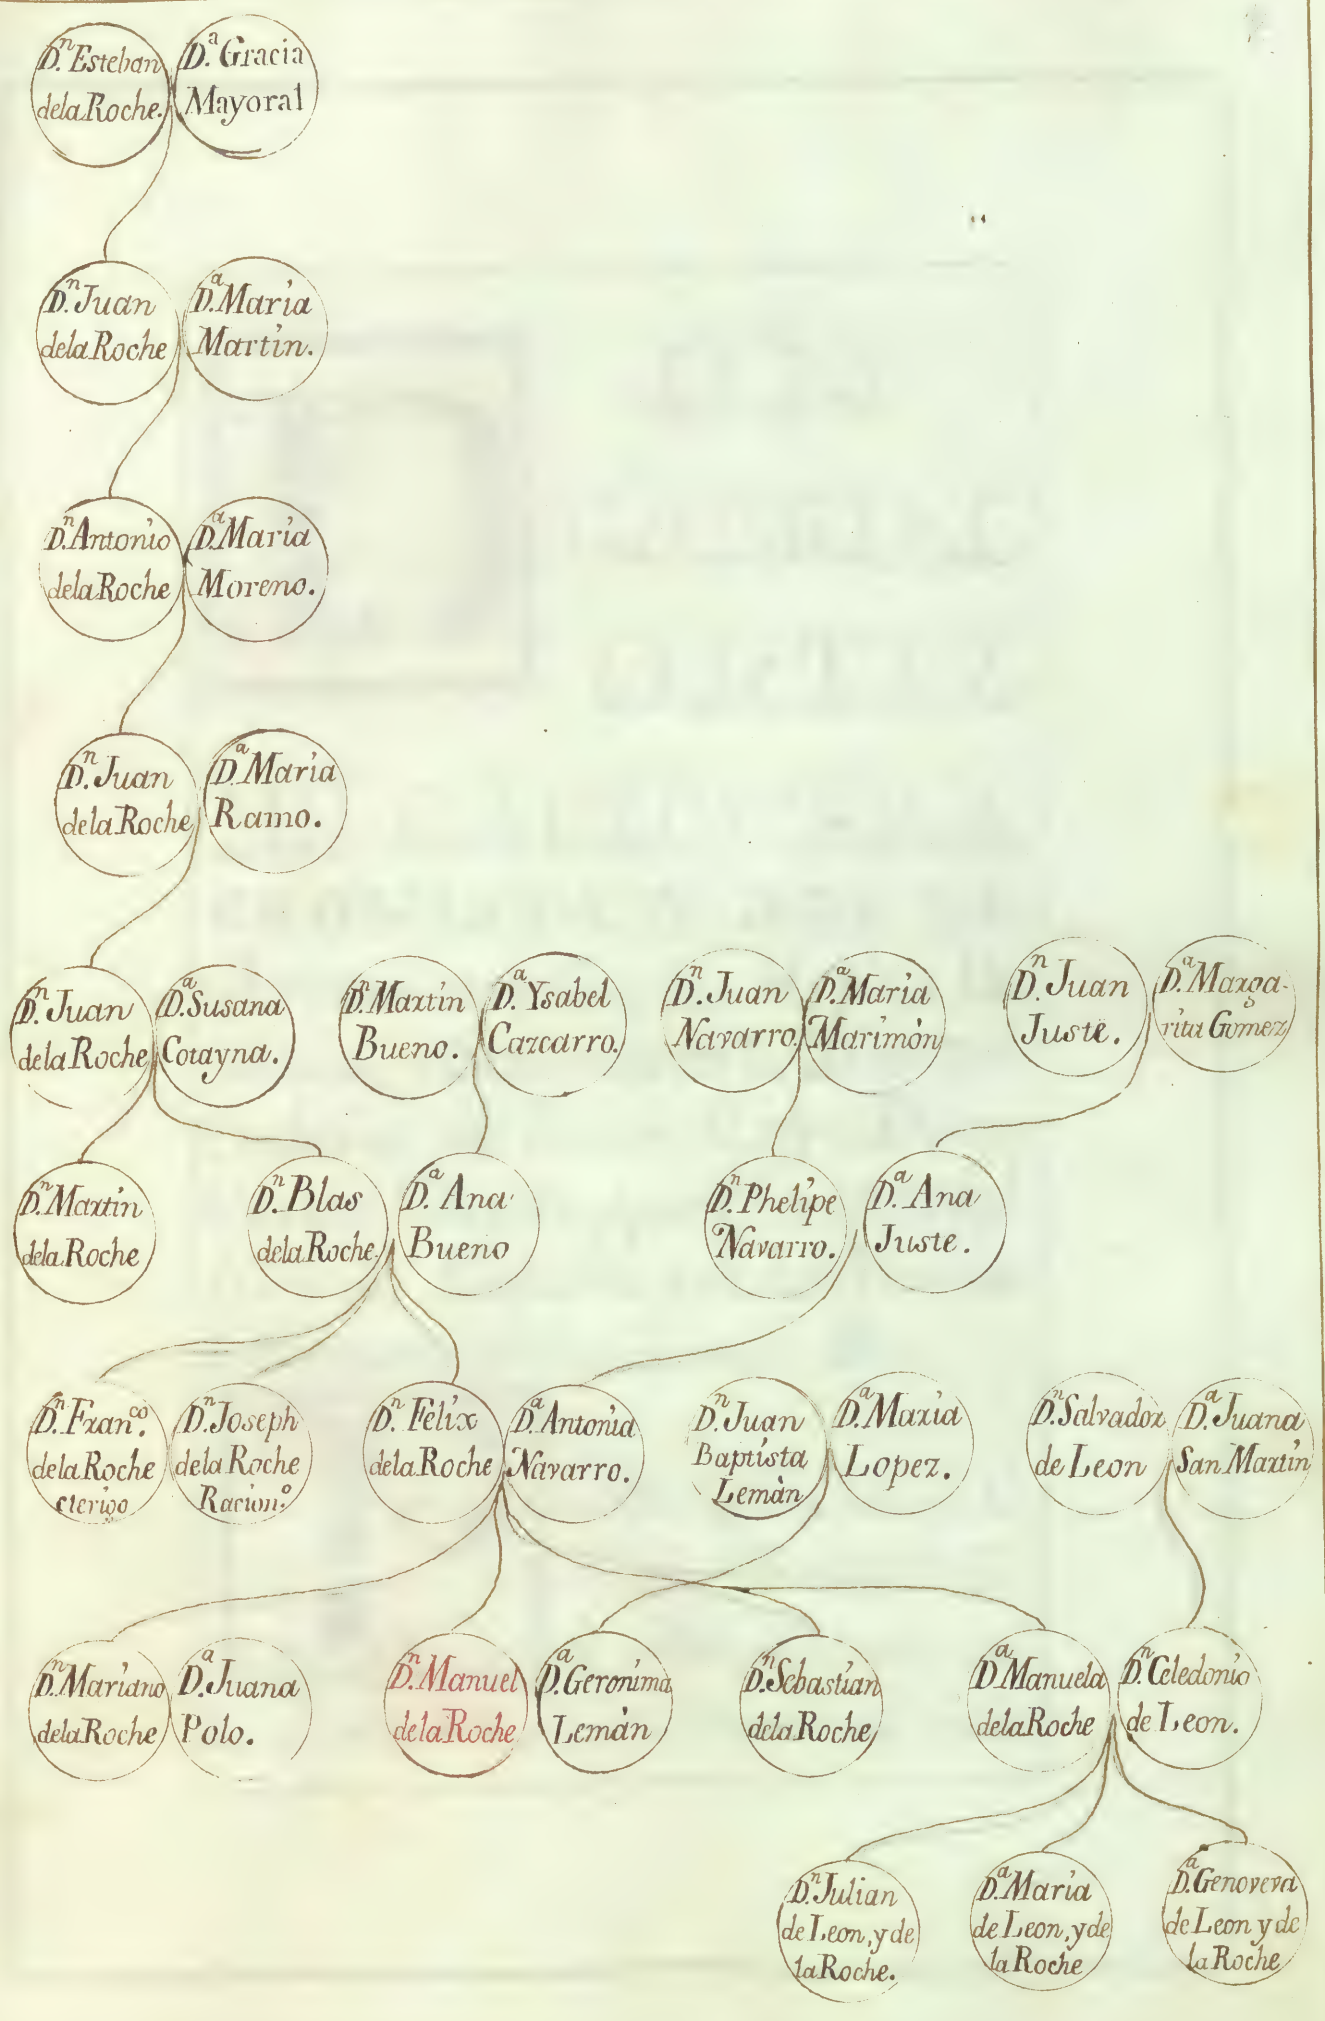 D.ⁿ Esteban
dela Roche.
D.ª Gracia
Mayoral
D.ⁿ Juan
dela Roche
D.ª María
Martín.
D.ⁿ Antonio
dela Roche
D.ª María
Moreno.
D.ⁿ Juan
dela Roche
D.ª María
Ramo.
D.ⁿ Juan
dela Roche
D.ª Susana
Cotayna.
D.ⁿ Martín
Bueno.
D.ª Ysabel
Cazcarro.
D.ⁿ Juan
Navarro.
D.ª María
Marimón
D.ⁿ Juan
Juste.
D.ª Marga-
rita Gomez
D.ⁿ Martín
dela Roche
D.ⁿ Blas
dela Roche.
D.ª Ana
Bueno
D.ⁿ Phelipe
Navarro.
D.ª Ana
Juste.
D.ⁿ Fran.ᶜᵒ
dela Roche
clerigo
D.ⁿ Joseph
dela Roche
Racion.º
D.ⁿ Felix
dela Roche
D.ª Antonia
Navarro.
D.ⁿ Juan
Baptista
Lemàn
D.ª María
Lopez.
D.ⁿ Salvador
de Leon
D.ª Juana
San Martín
D.ⁿ Mariano
dela Roche
D.ª Juana
Polo.
D.ⁿ Manuel
dela Roche
D.ª Geronima
Lemàn
D.ⁿ Sebastian
dela Roche
D.ª Manuela
dela Roche
D.ⁿ Celedonio
de Leon.
D.ⁿ Julian
de Leon, y de
la Roche.
D.ª María
de Leon, y de
la Roche
D.ª Genoveva
de Leon y de
la Roche